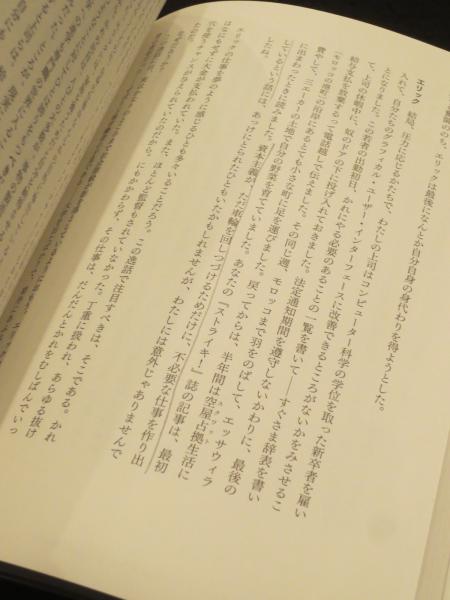 のち、エリックは最後になんとか自分自身の身代わりを得ようとした。
エリック　結局、圧力に応じるかたちで、わたしの上司はコンピューター科学の学位を取った新卒者を雇い
入れて、自分たちのグラフィカル・ユーザー・インターフェースに改善できるところがないかをみさせるこ
とになりました。この若者の出勤初日、かれにやる必要のあることの一覧を書いて――すぐさま辞表を書い
て、上司の休暇中に、奴のドアの下に投げ入れておきました。法定通知期間を遵守しないかわりに、最後の
給与支払を放棄するって電話越しで伝えました。その同じ週、モロッコまで羽をのばして、エッサウィラ
［モロッコの港町］の沿岸にあるとても小さな町に足を運びました。戻ってからは、半年間は空屋占拠生活に
スクワット
費やして、三エーカーの土地で自分の野菜を育てていました。あなたの『ストライキ！』誌の記事は、最初
に出まわったときに読みました。ただ車輪を回しつづけるためだけに、不必要な仕事を作り出
しているという話には、あっけにとられたひともいたかもしれませんが、わたしには意外じゃありませんで
したね。
資本主義が
エリックの仕事を夢のように感じるひとも多くいることだろう。この逸話で注目すべきは、そこである。かれ
はなにもせずに大金が支払われていた。また、ほとんど監督もされていなかった。丁重に扱われ、あらゆる抜け
穴を使うチャンスが与えられていたのだから。にもかかわらず、その仕事は、だんだんとかれをむしばんでいっ
たのだ。